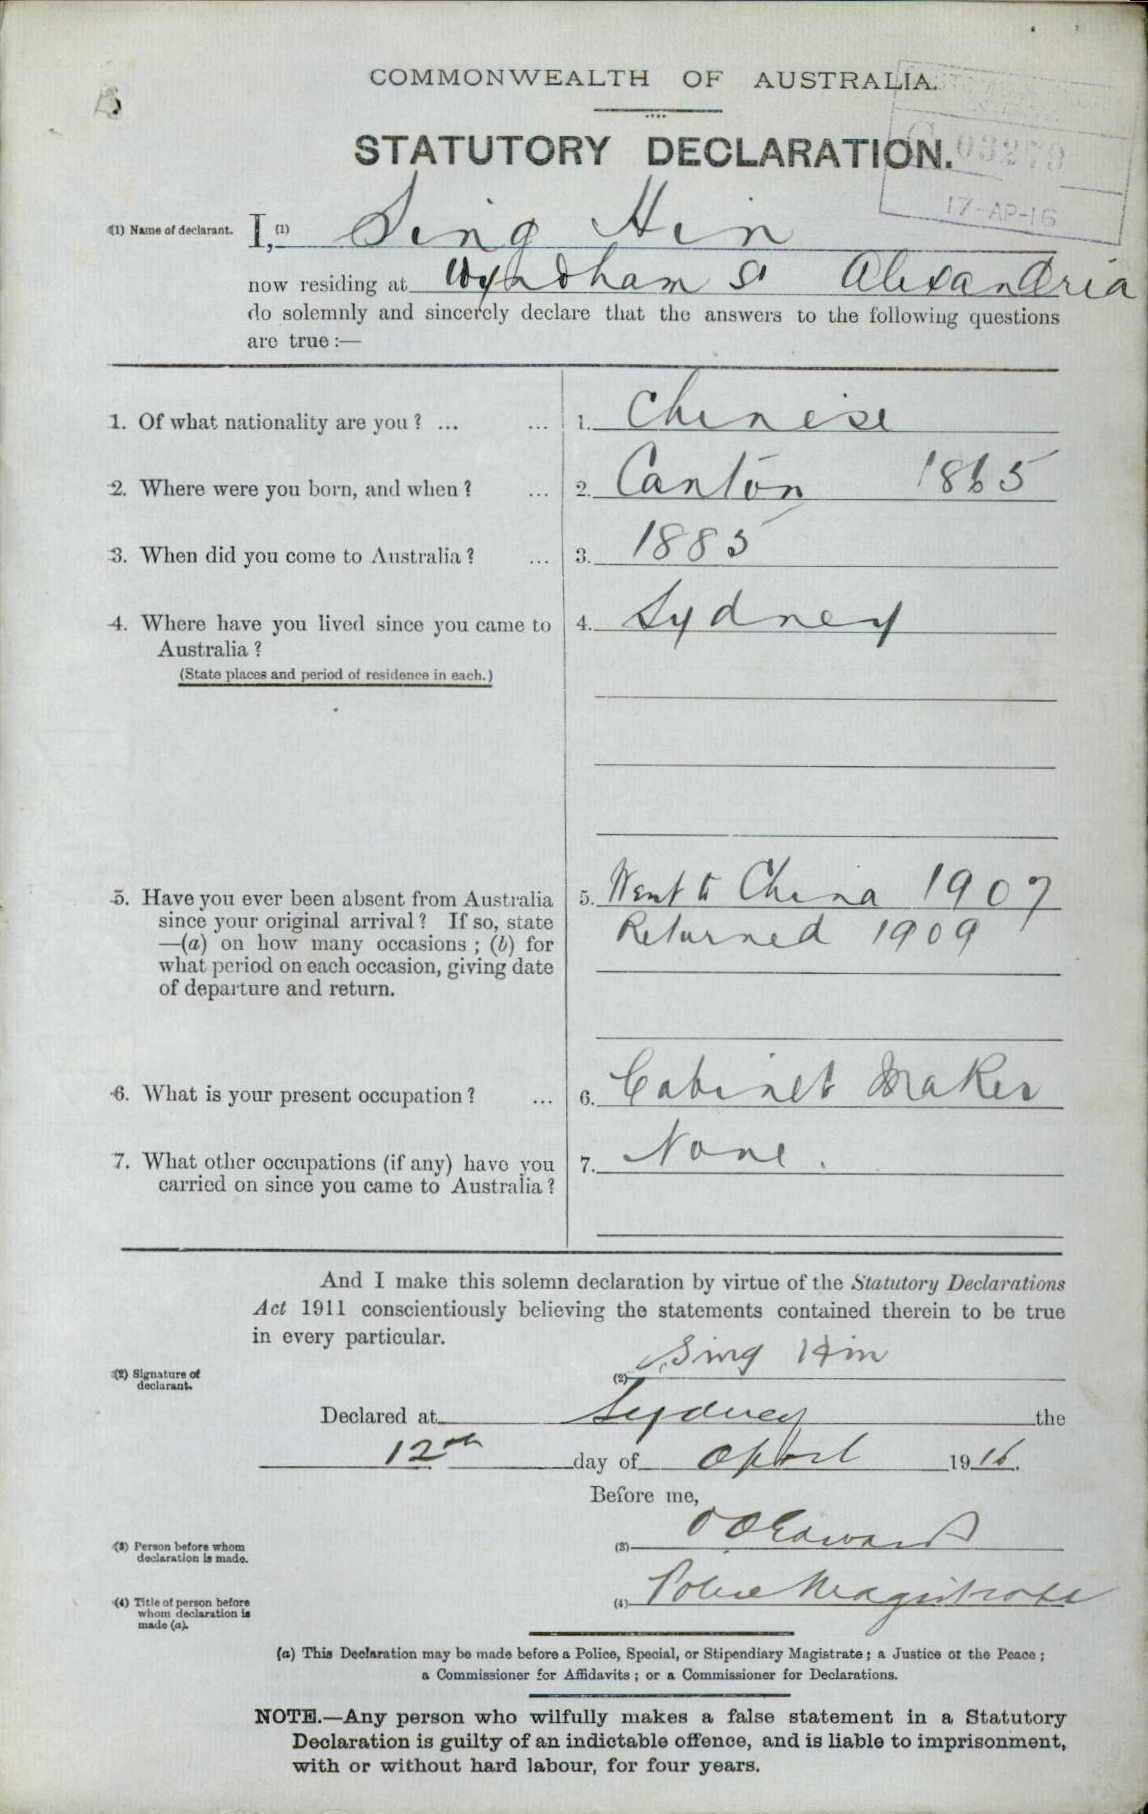 COMMONWEALTH OF AUSTRALIA.
STATUTORY DECLARATION.
C 03279
17-AP-16
(1) Name of declarant.
I,(1) Sing Hin
now residing at Wyndham St Alexandria
do solemnly and sincerely declare that the answers to the following questions
are true :—
1. Of what nationality are you ? ... ... 1. Chinese
2. Where were you born, and when ? ... 2. Canton 1865
3. When did you come to Australia ? ... 3. 1885
4. Where have you lived since you came to 4. Sydney
Australia ?
(State places and period of residence in each.)
5. Have you ever been absent from Australia 5. Went to China 1907
since your original arrival ? If so, state Returned 1909
—(a) on how many occasions ; (b) for
what period on each occasion, giving date
of departure and return.
6. What is your present occupation ? ... 6. Cabinet Maker
7. What other occupations (if any) have you 7. None.
carried on since you came to Australia ?
And I make this solemn declaration by virtue of the Statutory Declarations
Act 1911 conscientiously believing the statements contained therein to be true
in every particular.
(2) Signature of
declarant.
(2) Sing Hin
Declared at Sydney the
12th day of April 1916.
Before me,
(3) Person before whom
declaration is made.
(3) Edwards
(4) Title of person before
whom declaration is
made (a).
(4) Police Magistrate
(a) This Declaration may be made before a Police, Special, or Stipendiary Magistrate ; a Justice of the Peace ;
a Commissioner for Affidavits ; or a Commissioner for Declarations.
NOTE.—Any person who wilfully makes a false statement in a Statutory
Declaration is guilty of an indictable offence, and is liable to imprisonment,
with or without hard labour, for four years.